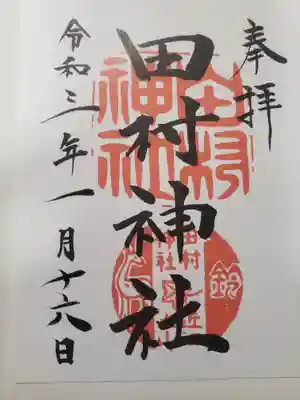 奉拝
田村神社
田村
神社
令和三年一月十六日